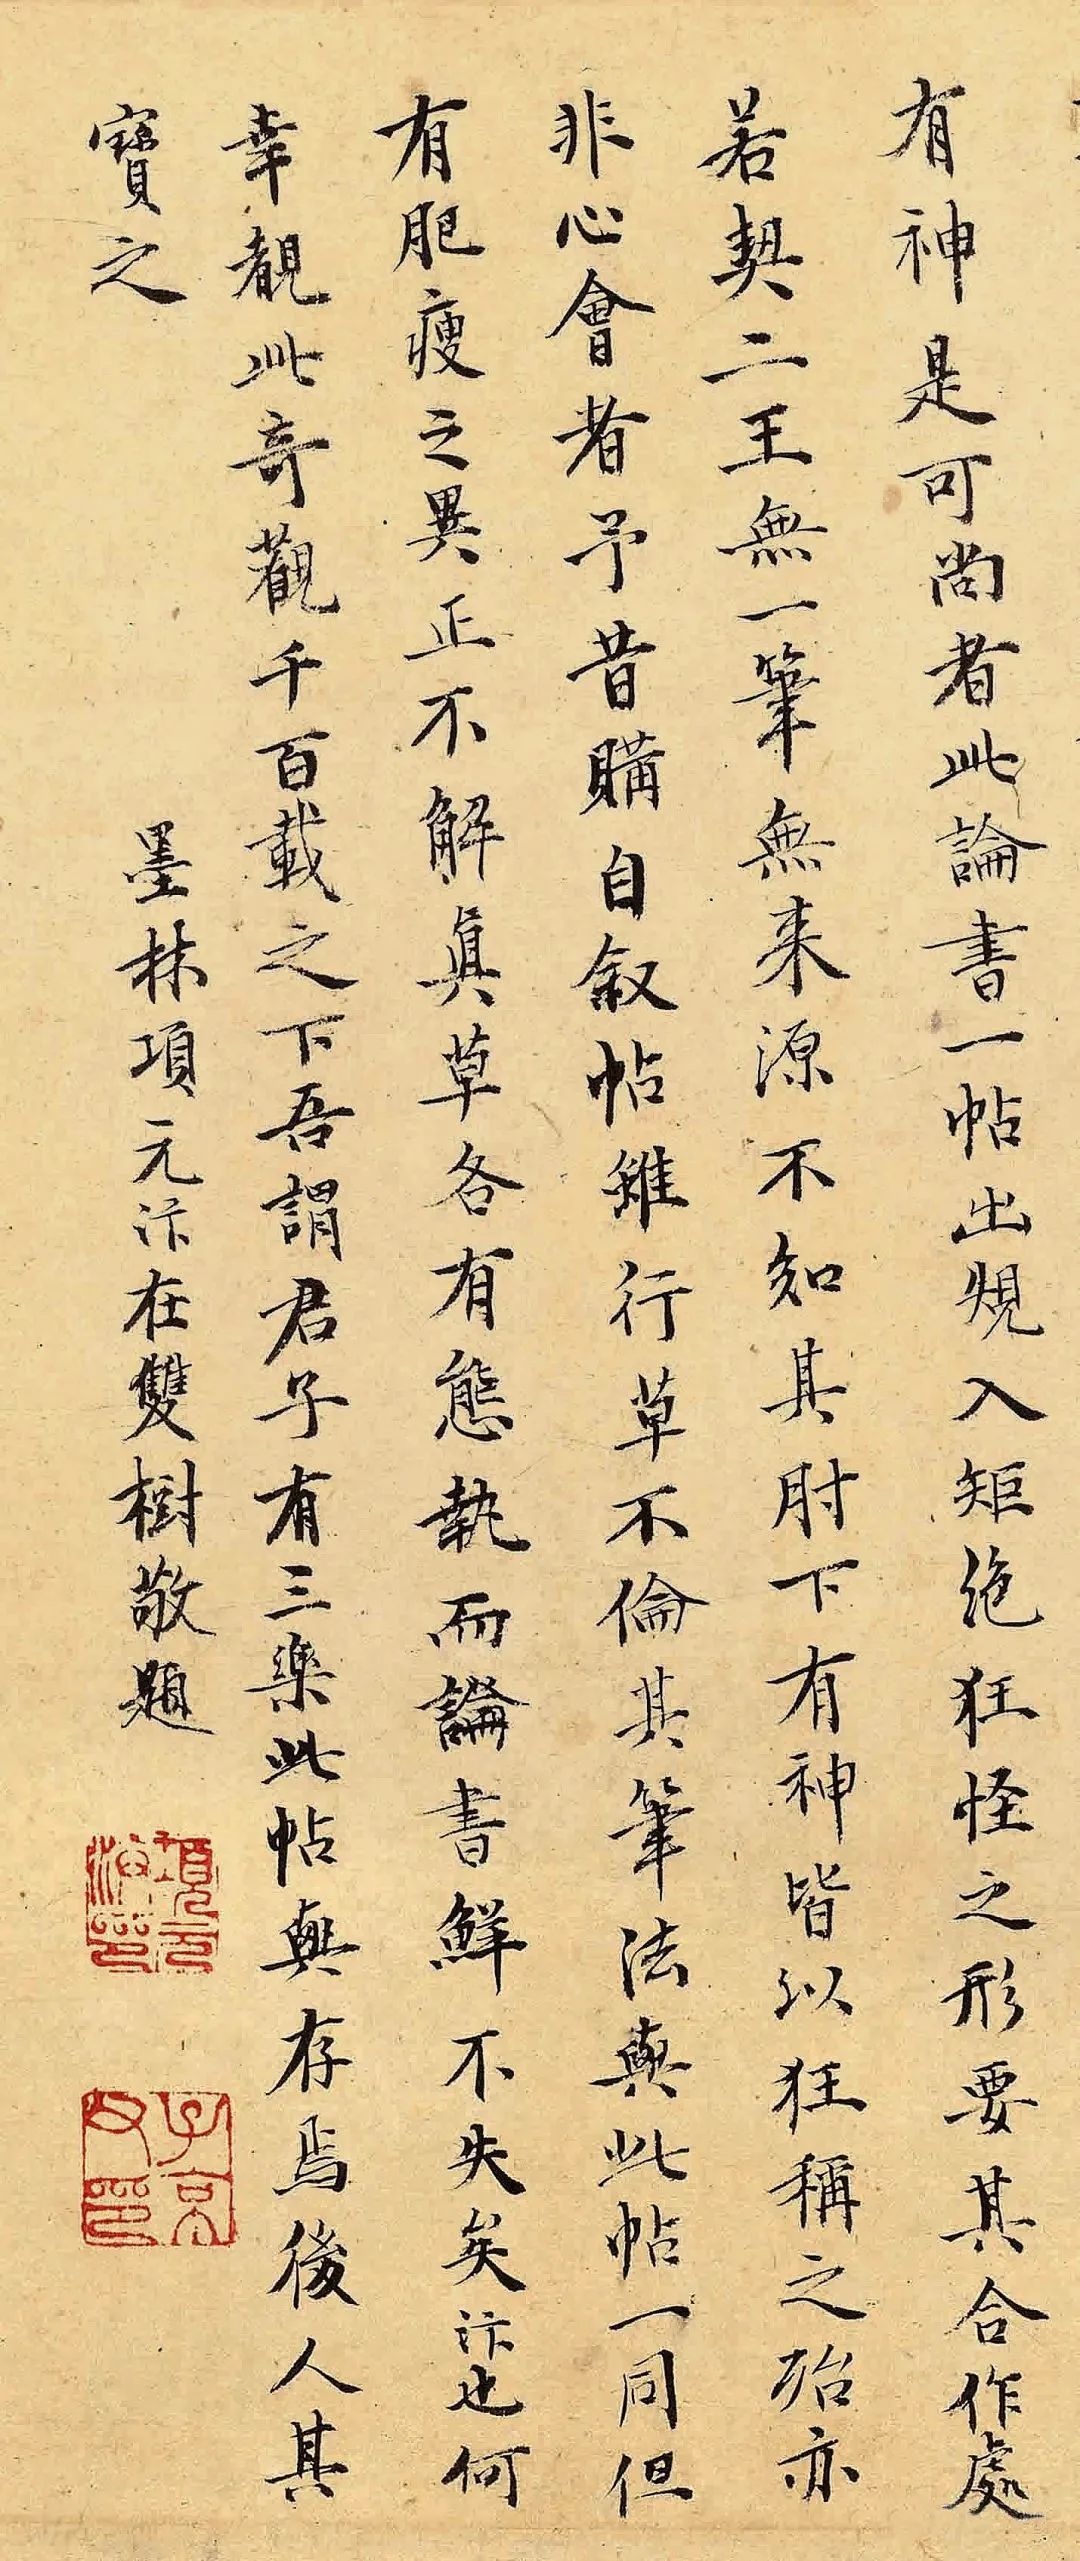 有神是可尚者此論書一帖出規入矩絶狂怪之形要其合作處
若契二王無一筆無来源不知其肘下有神皆以狂稱之殆亦
非心會者予昔購自叙帖雖行草不倫其筆法與此帖一同但
有肥瘦之異正不解眞草各有態執而論書鮮不失矣汴也何
幸覩此奇觀千百載之下吾謂君子有三樂此帖與存焉後人其
寶之
墨林項元汴在雙樹敬題
項元汴印
子京父印